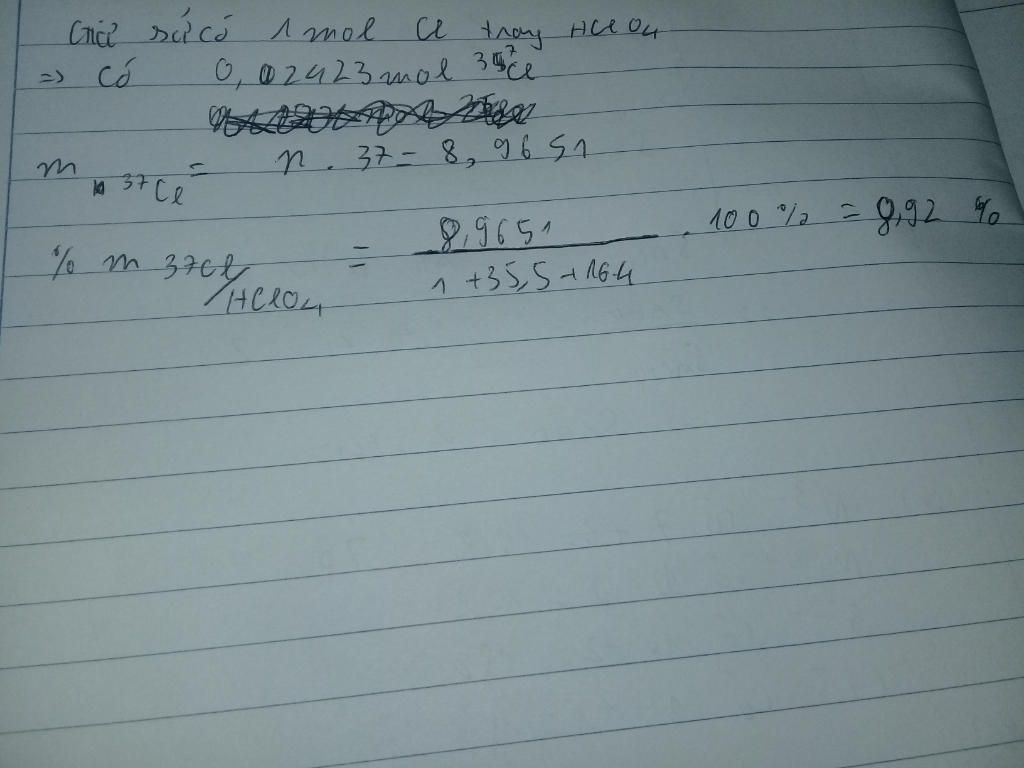 Giả sử có 1 mol Cl trong HClO₄
=> Có 0,02423 mol ³⁷Cl
m ³⁷Cl = n . 37 = 8,9651
% m 37Cl/HClO₄ = 8,9651 / 1 + 35,5 + 16.4 . 100 % = 8,92 %